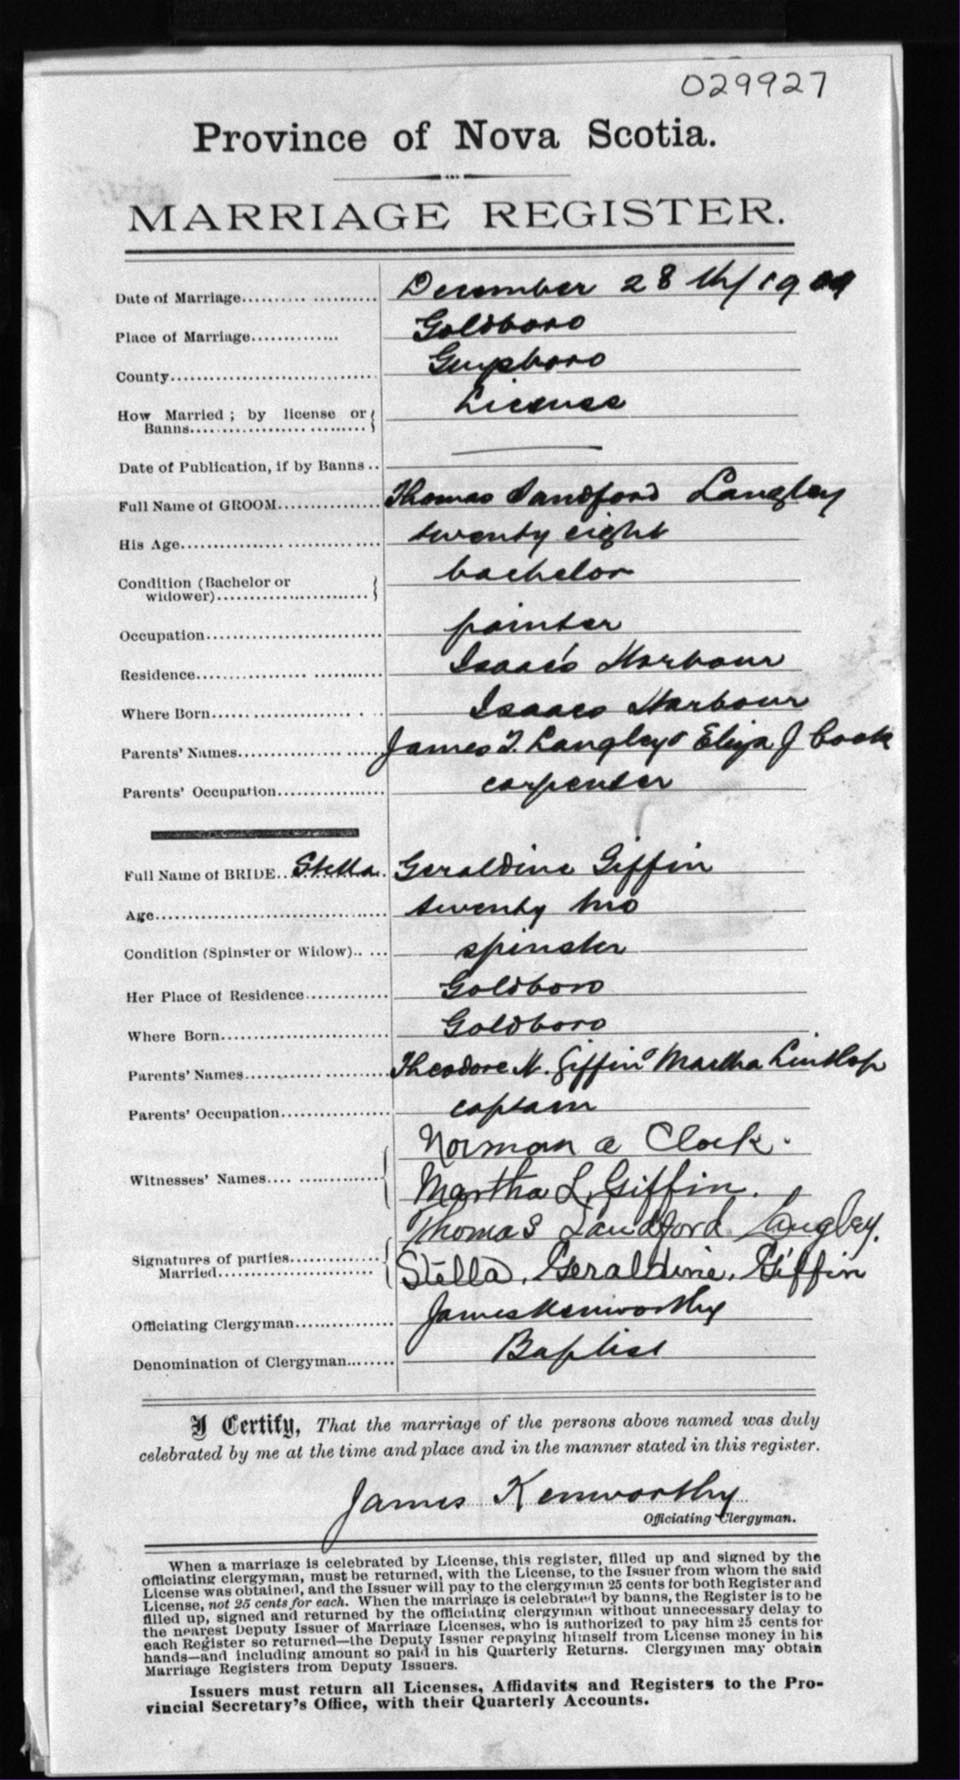 029927
Province of Nova Scotia.
MARRIAGE REGISTER.
Date of Marriage.......... ............ December 28 th/ 19
Place of Marriage.............. Goldboro
County.............................. Guysboro
How Married ; by license or Banns.................................. License
Date of Publication, if by Banns .. ——
Full Name of GROOM................ Thomas Sandford Langley
His Age.............................. twenty eight
Condition (Bachelor or widower)......................... bachelor
Occupation........................... painter
Residence................ ........... Isaac's Harbour
Where Born................... . ... Isaacs Harbour
Parents' Names...................... James T. Langley & Eliza J Cook
Parents' Occupation................. carpenter
Full Name of BRIDE.. Stella Geraldine Giffin
Age................................... twenty two
Condition (Spinster or Widow).. ... spinster
Her Place of Residence............. Goldboro
Where Born.......................... Goldboro
Parents' Names...................... Theodore N. Giffin & Martha
Parents' Occupation................. captain
Witnesses' Names.... ............. Norman a Clark.
Martha L. Giffin.
Signatures of parties Married........................ Thomas Sandford Langley.
Stella. Geraldine. Giffin
Officiating Clergyman............... James Kenworthy
Denomination of Clergyman........ Baptist
I Certify, That the marriage of the persons above named was duly
celebrated by me at the time and place and in the manner stated in this register.
James Kenworthy
Officiating Clergyman.
When a marriage is celebrated by License, this register, filled up and signed by the
officiating clergyman, must be returned, with the License, to the Issuer from whom the said
License was obtained, and the Issuer will pay to the clergyman 25 cents for both Register and
License, not 25 cents for each. When the marriage is celebrated by banns, the Register is to be
filled up, signed and returned by the officiating clergyman without unnecessary delay to
the nearest Deputy Issuer of Marriage Licenses, who is authorized to pay him 25 cents for
each Register so returned—the Deputy Issuer repaying himself from License money in his
hands—and including amount so paid in his Quarterly Returns. Clergymen may obtain
Marriage Registers from Deputy Issuers.
Issuers must return all Licenses, Affidavits and Registers to the Pro-
vincial Secretary's Office, with their Quarterly Accounts.